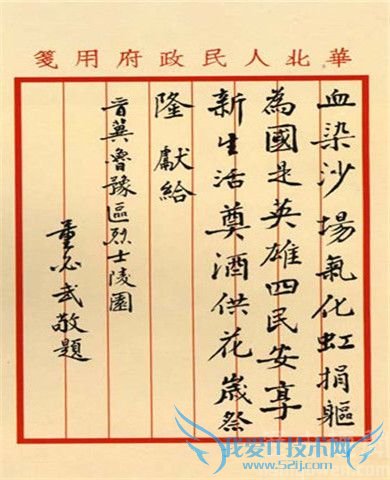 華北人民政府用箋
血染沙場氣化虹捐軀
為國是英雄四民安享
新生活奠酒供花歲祭
隆獻給
晉冀魯豫區烈士陵園
董必武敬題
我爱IT技术网
www.52ij.com